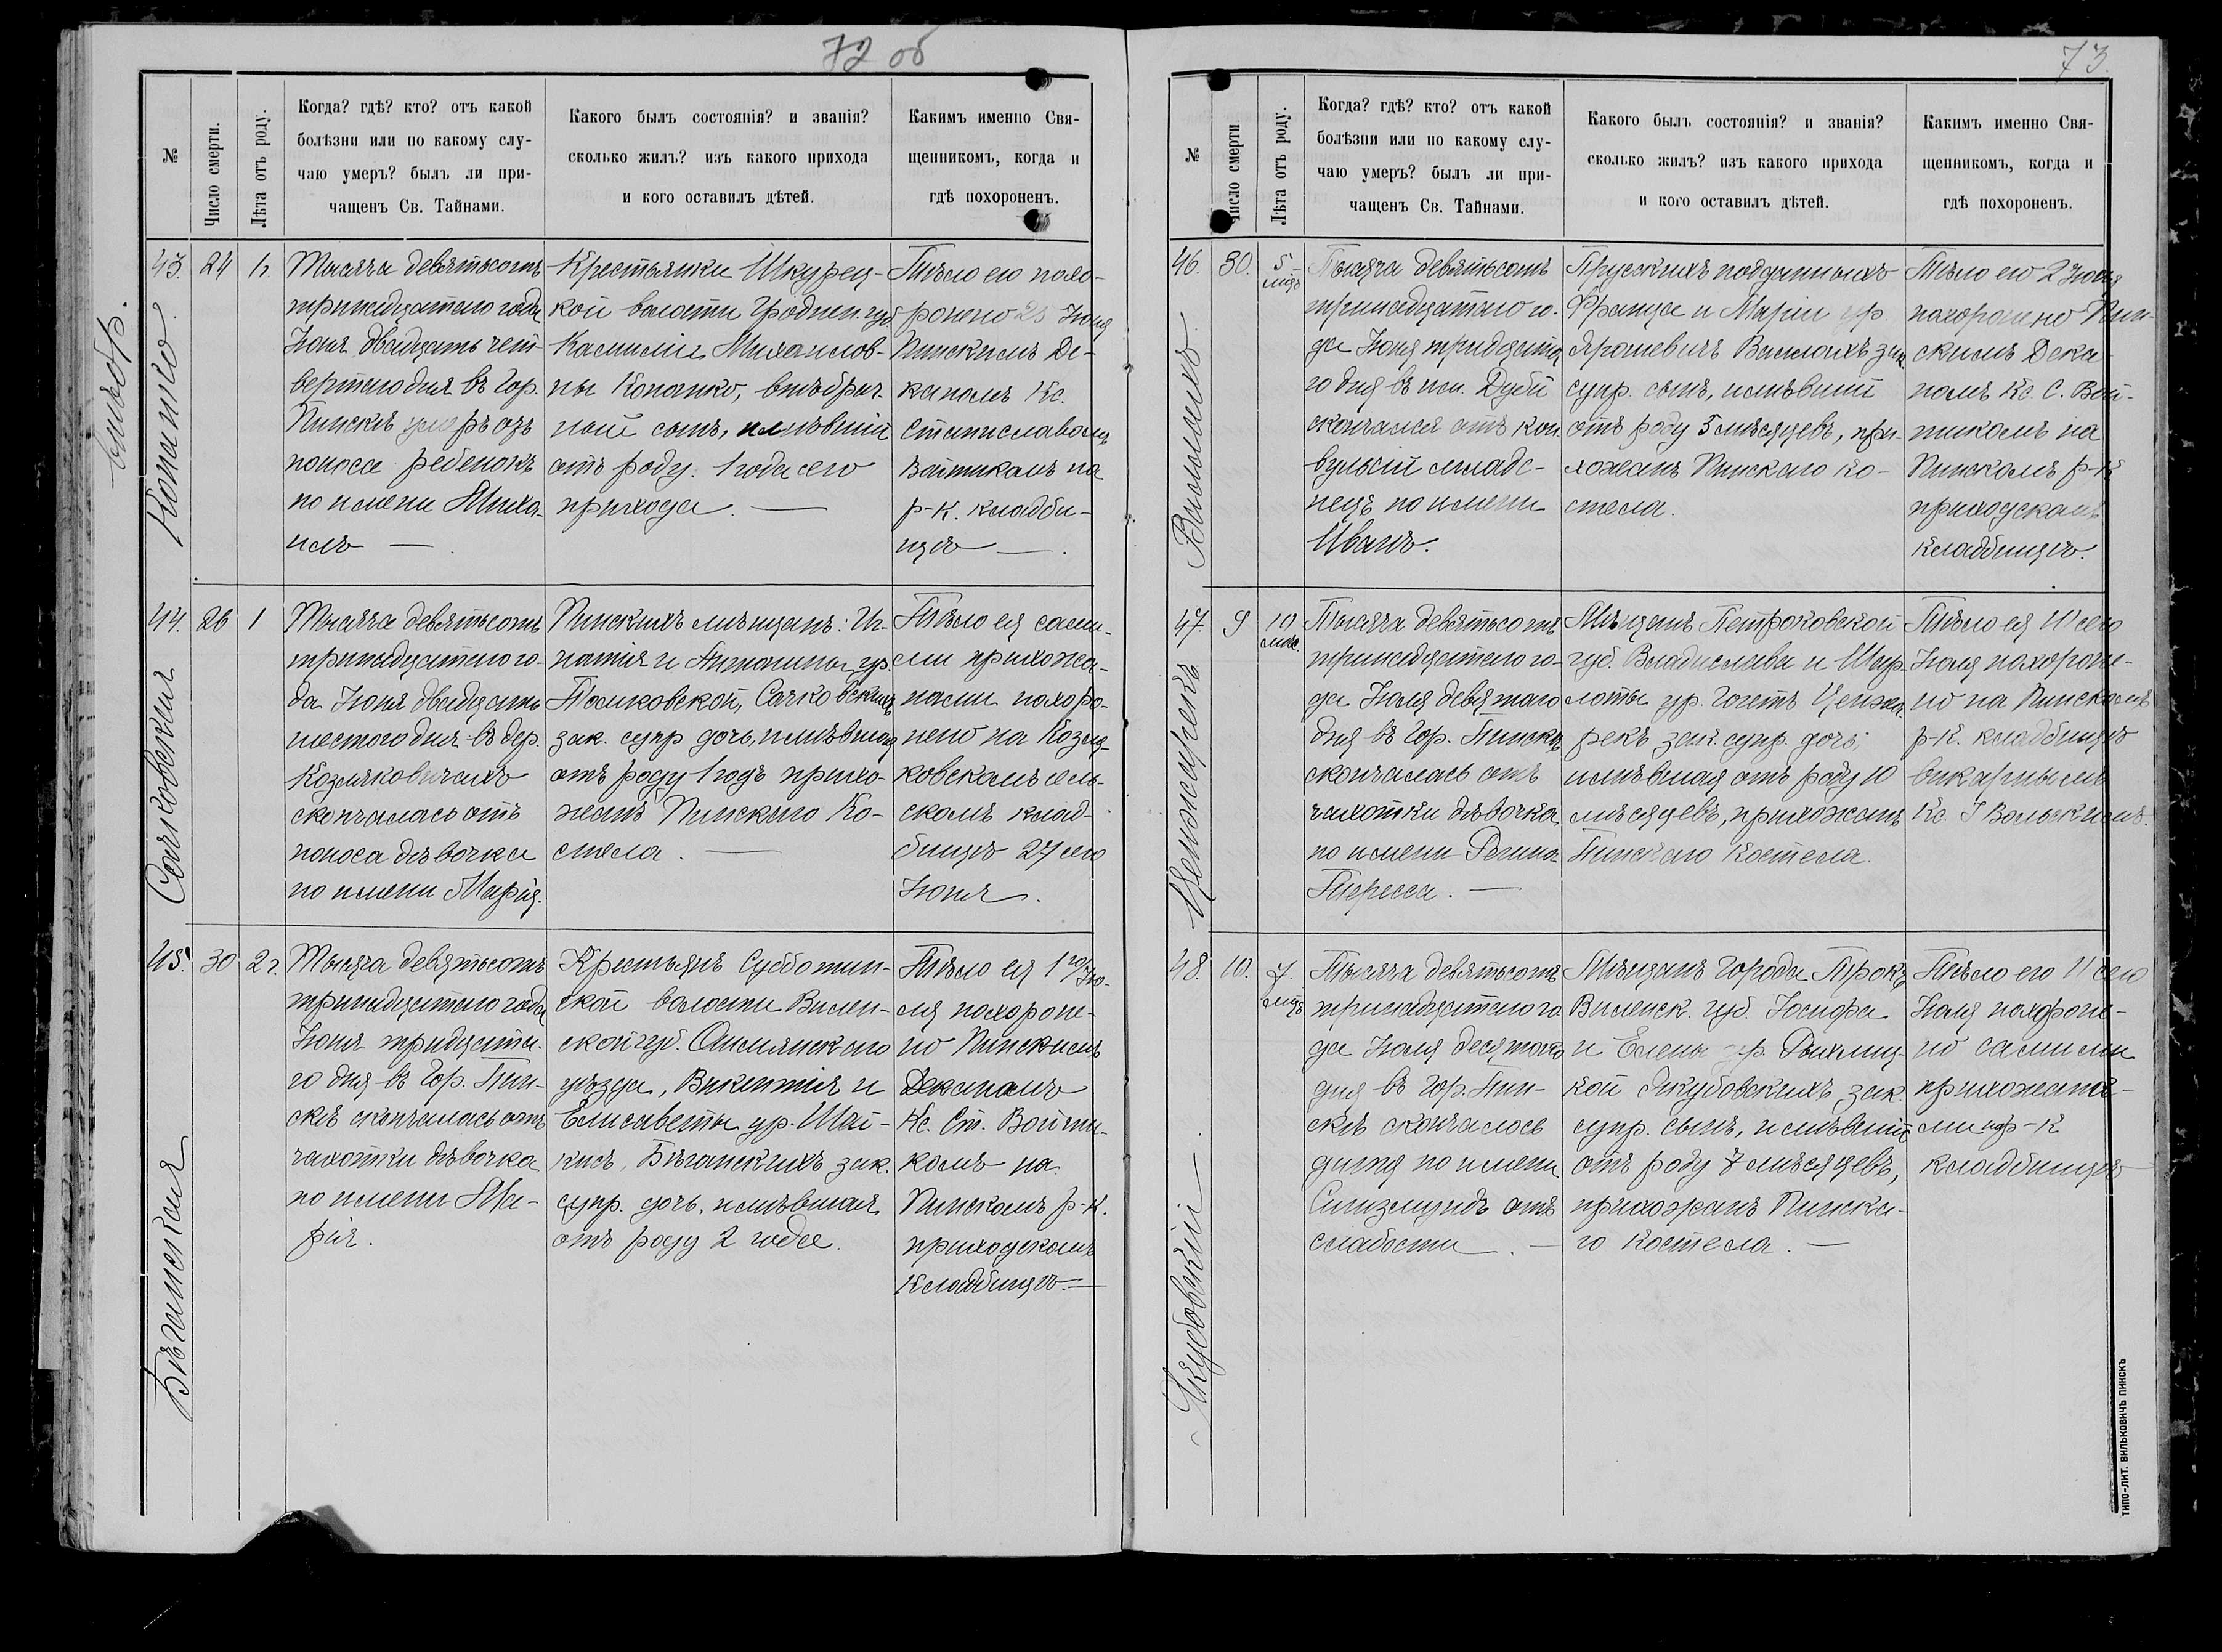 72 об
№
Число смерти.
Лѣта отъ роду.
Когда? гдѣ? кто? отъ какой
болѣзни или по какому слу-
чаю умеръ? былъ ли при-
чащенъ Св. Тайнами.
Какого былъ состоянія? и званія?
сколько жилъ? изъ какого прихода
и кого оставилъ дѣтей.
Какимъ именно Свя-
щенникомъ, когда и
гдѣ похороненъ.
внѣбр.
Копанко
43.
24
1г.
Тысяча девятьсотъ
тринадцатаго года
Іюня двадцать чет-
вертаго дня въ гор.
Пинскѣ умеръ отъ
поноса ребенокъ
по имени Миха-
илъ —
Крестьянки Шкурец-
кой волости Гроднен. губ
Михаилов-
ны Копанко, внѣбрач-
ной сынъ, имѣвшій
отъ роду. 1 года сего
прихода. —
Тѣло его похо-
ронено 25 Іюня
Пинскимъ Де-
каномъ Кс.
Станиславомъ
Войтикомъ на
р-к. кладби-
щѣ —.
Сачковская
44.
26
1
Тысяча девятьсотъ
тринадцатаго го-
да Іюня двадцать
шестого дня въ дер.
Козляковичахъ
скончалась отъ
поноса дѣвочка
по имени Марія.
Пинскихъ мѣщанъ: Иг-
натія и Антонины ур
Сачковскихъ
зак. супр дочь, имѣвшая
отъ роду 1 годъ прихо-
жанъ Пинскаго Ко-
стела. —
Тѣло ея сами-
ми прихожа-
нами похоро-
нено на Козля-
ковскомъ сель-
скомъ клад-
бищѣ 27 сего
Іюня.
Бѣганская
45.
30
2г.
Тысяча девятьсотъ
тринадцатаго года
Іюня тридцата-
го дня въ гор. Пин-
скѣ скончалась отъ
чахотки дѣвочка
по имени Ма-
рія.
Крестьянъ Субботин-
ской волости Вилен-
ской губ. Ошмянскаго
уѣзда, Викентія и
Елисаветы ур. Шай-
Бѣганскихъ зак.
супр. дочь, имѣвшая
отъ роду 2 года.
Тѣло ея 1го Ію-
ля похороне-
но Пинскимъ
Деканомъ
Кс. Ст. Войти-
комъ на
Пинскомъ р-к.
приходскомъ
кладбищѣ. —
73.
№
Число смерти
Лѣта отъ роду.
Когда? гдѣ? кто? отъ какой
болѣзни или по какому слу-
чаю умеръ? былъ ли при-
чащенъ Св. Тайнами.
Какого былъ состоянія? и званія?
сколько жилъ? изъ какого прихода
и кого оставилъ дѣтей.
Какимъ именно Свя-
щенникомъ, когда и
гдѣ похороненъ.
46.
30.
5
мцъ
Тысяча девятьсотъ
тринадцатаго го-
да Іюня тридцата
го дня въ им. Дубой
скончался отъ кон-
вульсій младе-
нецъ по имени
Иванъ.
Прусскихъ подданныхъ
Франца и Маріи ур.
Ярошевичъ зак.
супр. сынъ, имѣвшій
отъ роду 5 мѣсяцевъ, при-
хожанъ Пинскаго Ко-
стела.
Тѣло его 2 Іюля
похоронено Пин-
скимъ Дека-
номъ Кс. С. Вой-
тикомъ на
Пинскомъ р-к
приходскомъ
кладбищѣ.
47.
9
10
Тысяча девятьсотъ
тринадцатаго го-
да Іюля девятаго
дня въ гор. Пинскѣ
скончалась отъ
чахотки дѣвочка
по имени Регина-
Тересса. —
Мѣщанъ Петроковской
губ. Владислава и Шар-
лоты ур.
зак. супр. дочь,
имѣвшая отъ роду 10
мѣсяцевъ, прихожанъ
Пинскаго Костела.
Тѣло ея 10 сего
Іюля похороне-
но на Пинскомъ
р-к. кладбищѣ
викарнымъ
Якубовскій
48.
10.
7
мцъ
Тысяча девятьсотъ
тринадцатаго го
да Іюля десятаго
дня въ гор. Пин-
скѣ скончалось
дитя по имени
Сигизмундъ отъ
слабости. —
Мѣщанъ города Трокъ
Виленск. губ. Іосифа
и Елены ур.
Якубовскихъ, зак.
супр. сынъ, имѣвшій
отъ роду 7 мѣсяцевъ,
прихожанъ Пинска-
го Костела. —
Тѣло его 11 сего
Іюля похороне-
но самими
прихожана-
ми на р-к
кладбищѣ
ТИПО-ЛИТ. ВИЛЬКОВИЧЪ ПИНСКЪ